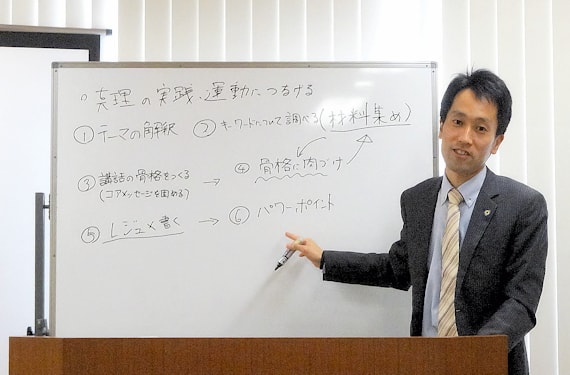 ○真理の実践、運動につなげる
① テーマの解釈 ② キーワードについて調べる(材料集め)
③ 講話の骨格をつくる → ④ 骨格に肉づけ
(コアメッセージを固める)
⑤ レジュメ書く → ⑥ パワーポイント